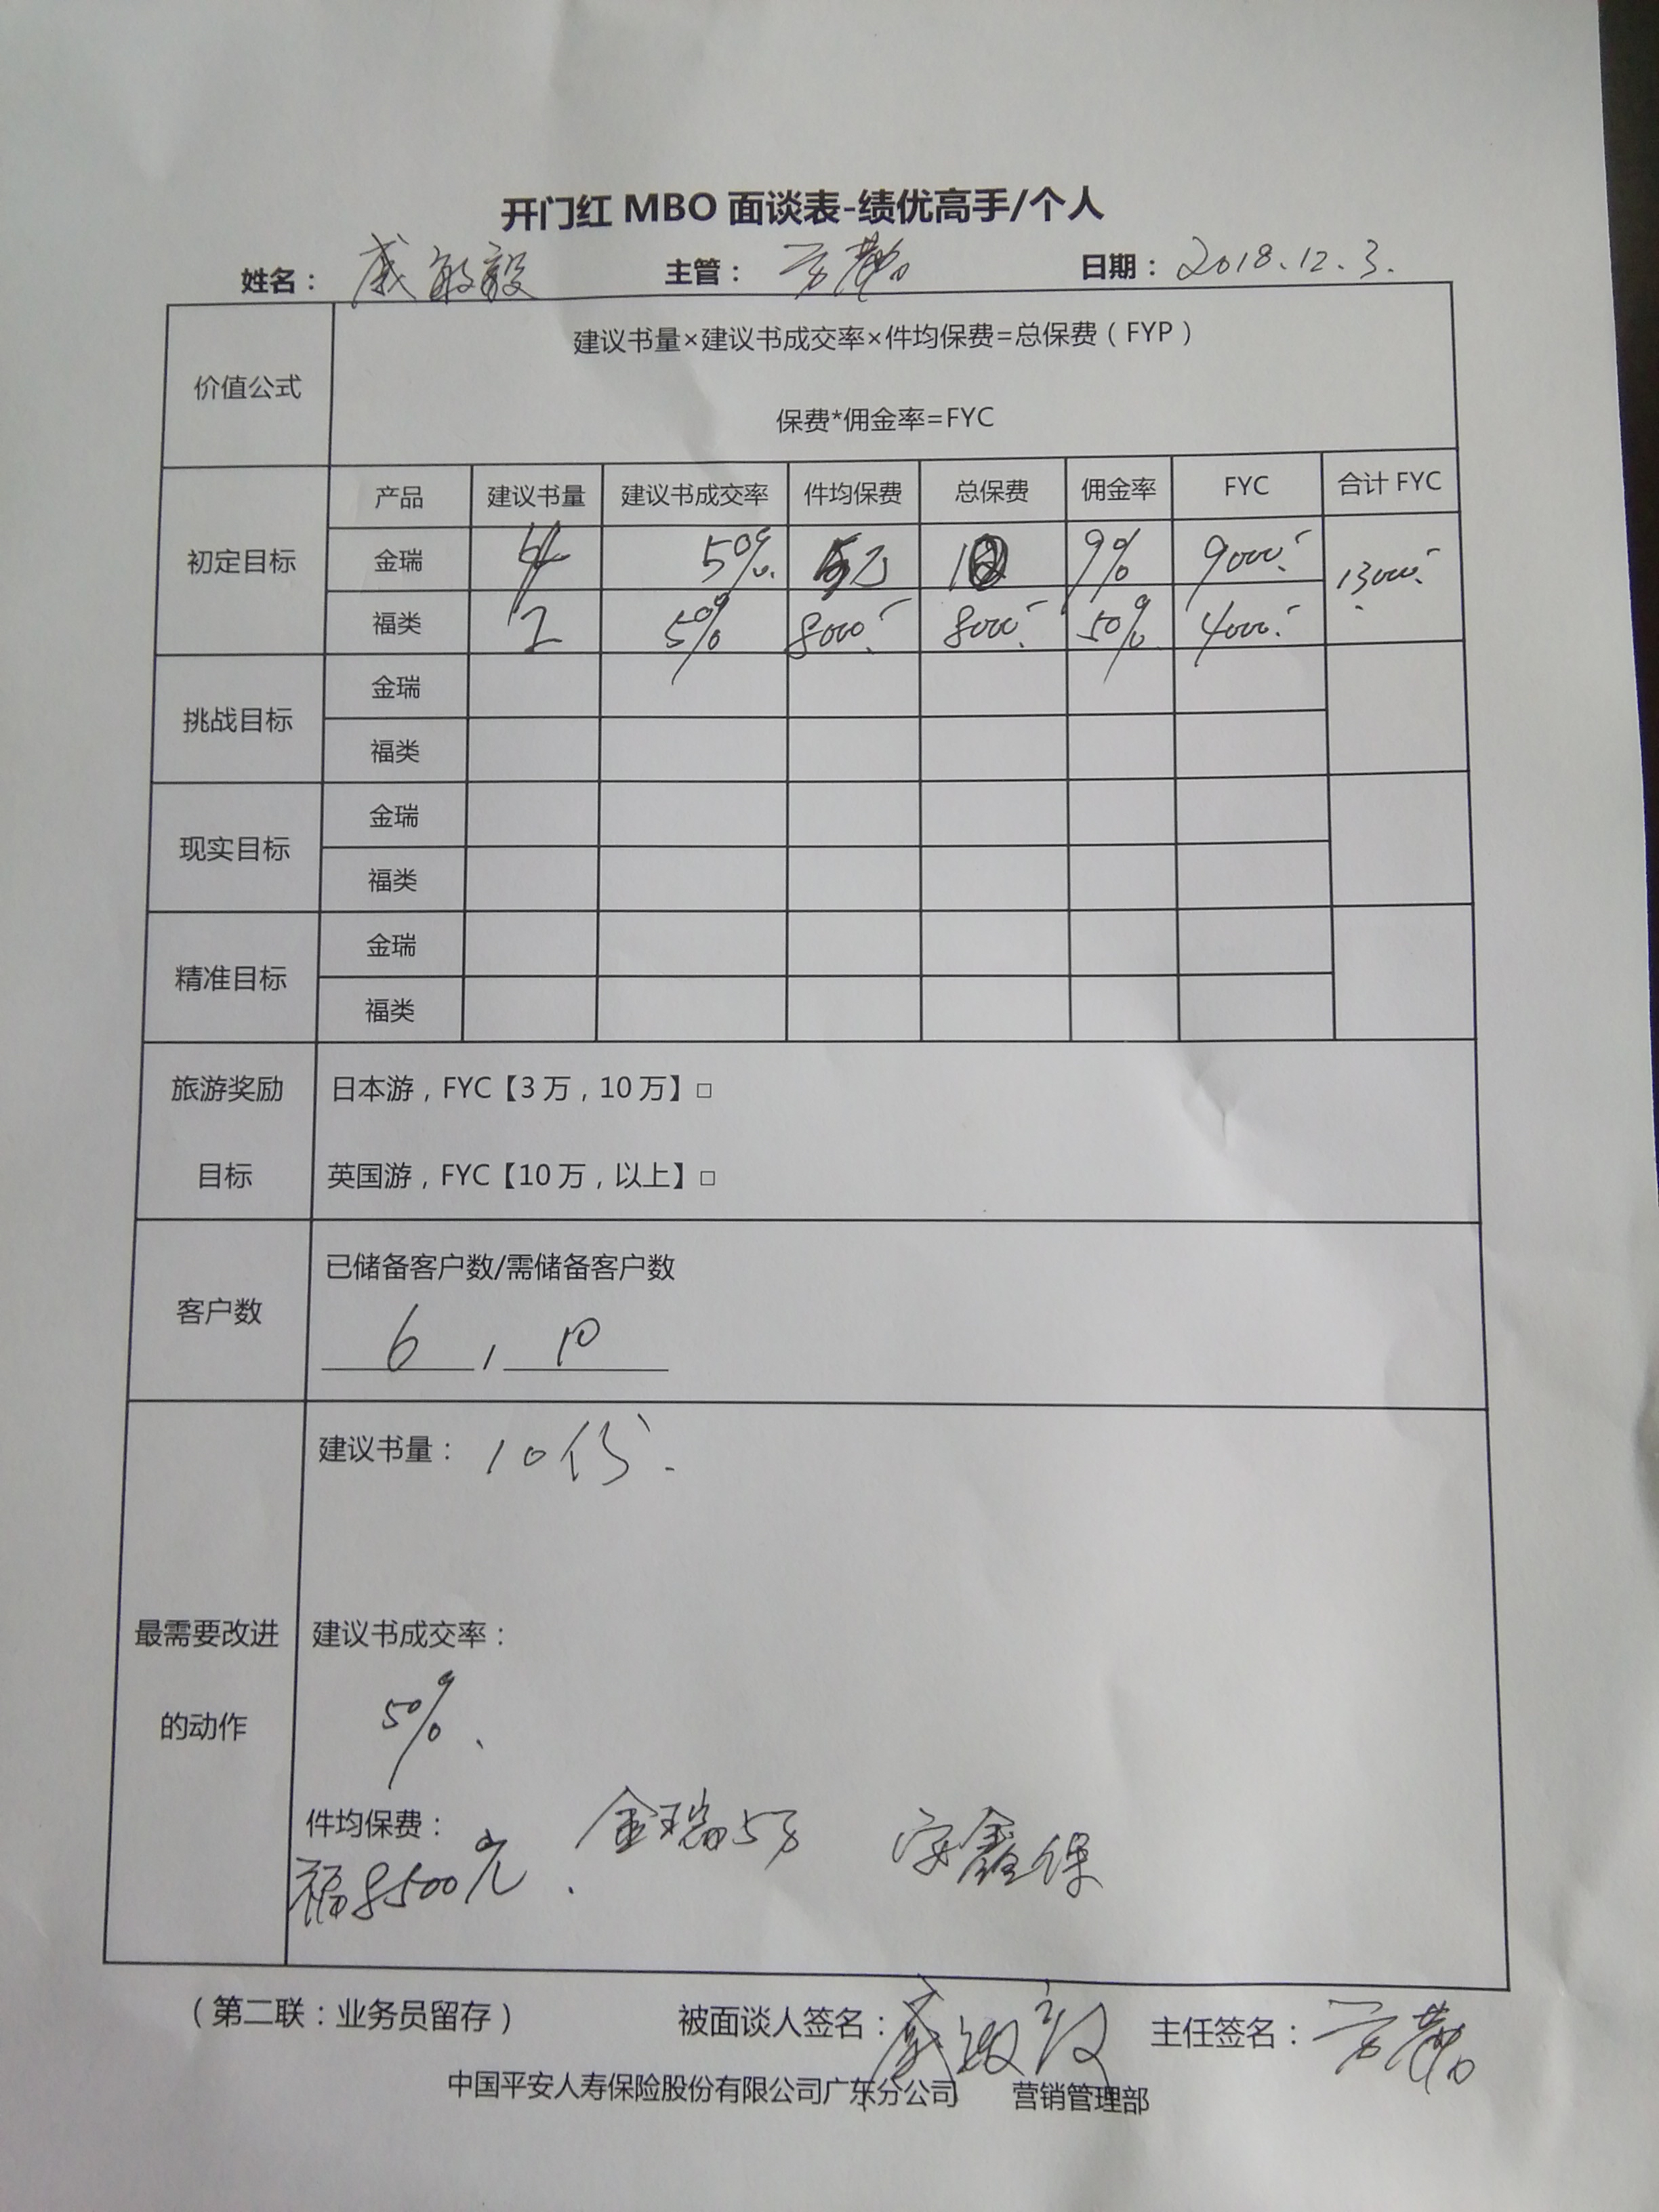 开门红 MBO 面谈表-绩优高手/个人
姓名： 戚敏毅 主管： 日期：2018.12.3.
价值公式
建议书量×建议书成交率×件均保费=总保费（FYP）
保费*佣金率=FYC
产品 建议书量 建议书成交率 件均保费 总保费 佣金率 FYC 合计 FYC
初定目标
金瑞 4 50% 5万 10 9% 9000.- 13000.-
福类 2 50% 8000.- 8000.- 50% 4000.-
挑战目标
金瑞
福类
现实目标
金瑞
福类
精准目标
金瑞
福类
旅游奖励
目标
日本游，FYC【3 万，10 万】□
英国游，FYC【10 万，以上】□
客户数
已储备客户数/需储备客户数
6 / 10
最需要改进
的动作
建议书量： 10份.
建议书成交率：
50%、
件均保费： 金瑞5万 安鑫保
福8500元.
（第二联：业务员留存） 被面谈人签名：戚敏毅 主任签名：
中国平安人寿保险股份有限公司广东分公司 营销管理部